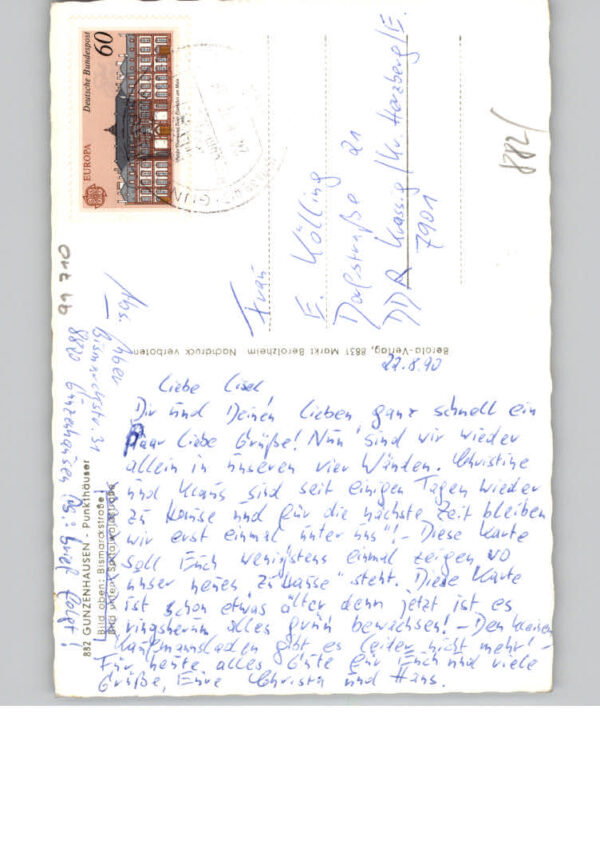 22.8.90
Liebe Lisel
Dir und Deinen Lieben ganz schnell ein
paar liebe Grüße! Nun sind wir wieder
allein in unseren vier Wänden. Christine
und Klaus sind seit einigen Tagen wieder
zu Hause und für die nächste Zeit bleiben
wir erst einmal "unter uns"! - Diese Karte
soll Euch wenigstens einmal zeigen wo
unser neues "zu Hause" steht. Diese Karte
ist schon etwas älter denn jetzt ist es
ringsherum alles grün bewachsen! - Den kleinen
Kaufmannsladen gibt es leider nicht mehr! -
Für heute alles Gute für Euch und viele
Grüße, Eure Christa und Hans.
Abs.
Bismarckstr. 31
8820 Gunzenhausen
Ps: Brief folgt!
882 GUNZENHAUSEN - Punkthäuser
Bild oben: Bismarckstraße
Berola-Verlag, 8831 Markt Berolzheim Nachdruck verboten
991 710
Frau
E. Kölling
Dorfstraße 21
DDR Krassig/Kr. Herzberg/E.
7901
882/
Deutsche Bundespost
60
EUROPA